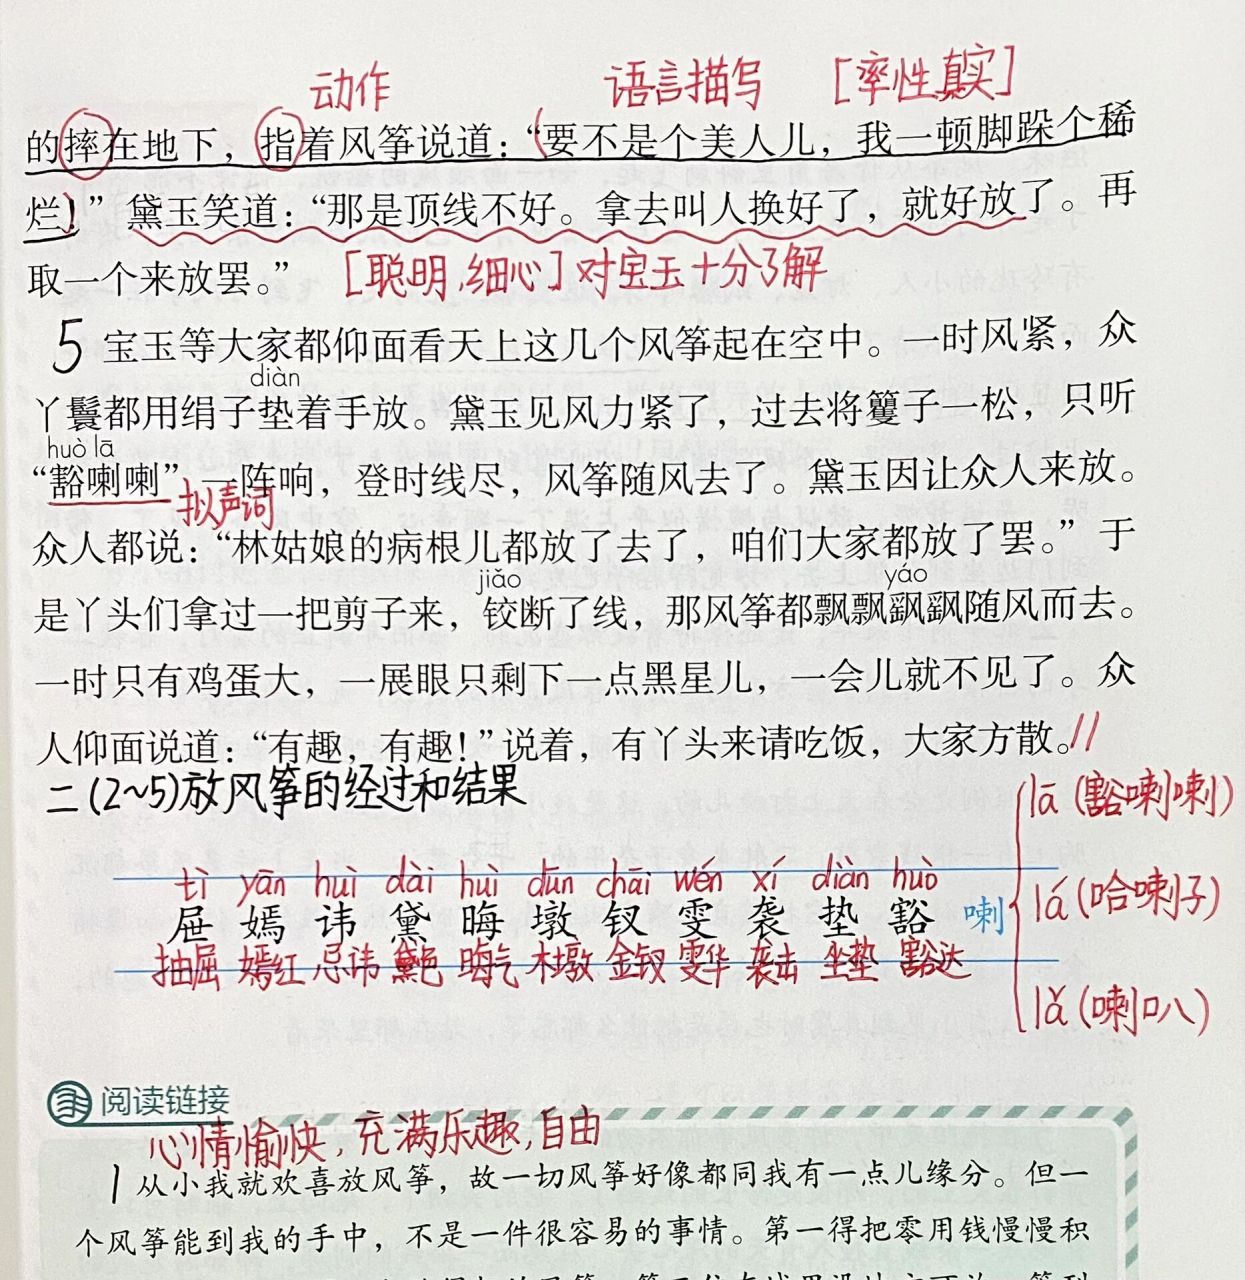 动作 语言描写 [率性真实]
的摔在地下，指着风筝说道：“要不是个美人儿，我一顿脚跺个稀
烂！”黛玉笑道：“那是顶线不好。拿去叫人换好了，就好放了。再
取一个来放罢。” [聪明,细心]对宝玉十分了解
5 宝玉等大家都仰面看天上这几个风筝起在空中。一时风紧，众
diàn
丫鬟都用绢子垫着手放。黛玉见风力紧了，过去将籰子一松，只听
huò lā
“豁喇喇”一阵响，登时线尽，风筝随风去了。黛玉因让众人来放。
拟声词
众人都说：“林姑娘的病根儿都放了去了，咱们大家都放了罢。”于
jiǎo yáo
是丫头们拿过一把剪子来，铰断了线，那风筝都飘飘飖飖随风而去。
一时只有鸡蛋大，一展眼只剩下一点黑星儿，一会儿就不见了。众
人仰面说道：“有趣，有趣！”说着，有丫头来请吃饭，大家方散。//
二(2~5)放风筝的经过和结果
lā (豁喇喇)
tì yān huì dài huì dūn chāi wén xí diàn huò
屉 嫣 讳 黛 晦 墩 钗 雯 袭 垫 豁 喇 lá (哈喇子)
抽屉 嫣红 忌讳 黛色 晦气 木墩 金钗 雯华 袭击 坐垫 豁达
lǎ (喇叭)
阅读链接
心情愉快,充满乐趣,自由
1 从小我就欢喜放风筝，故一切风筝好像都同我有一点儿缘分。但一
个风筝能到我的手中，不是一件很容易的事情。第一得把零用钱慢慢积